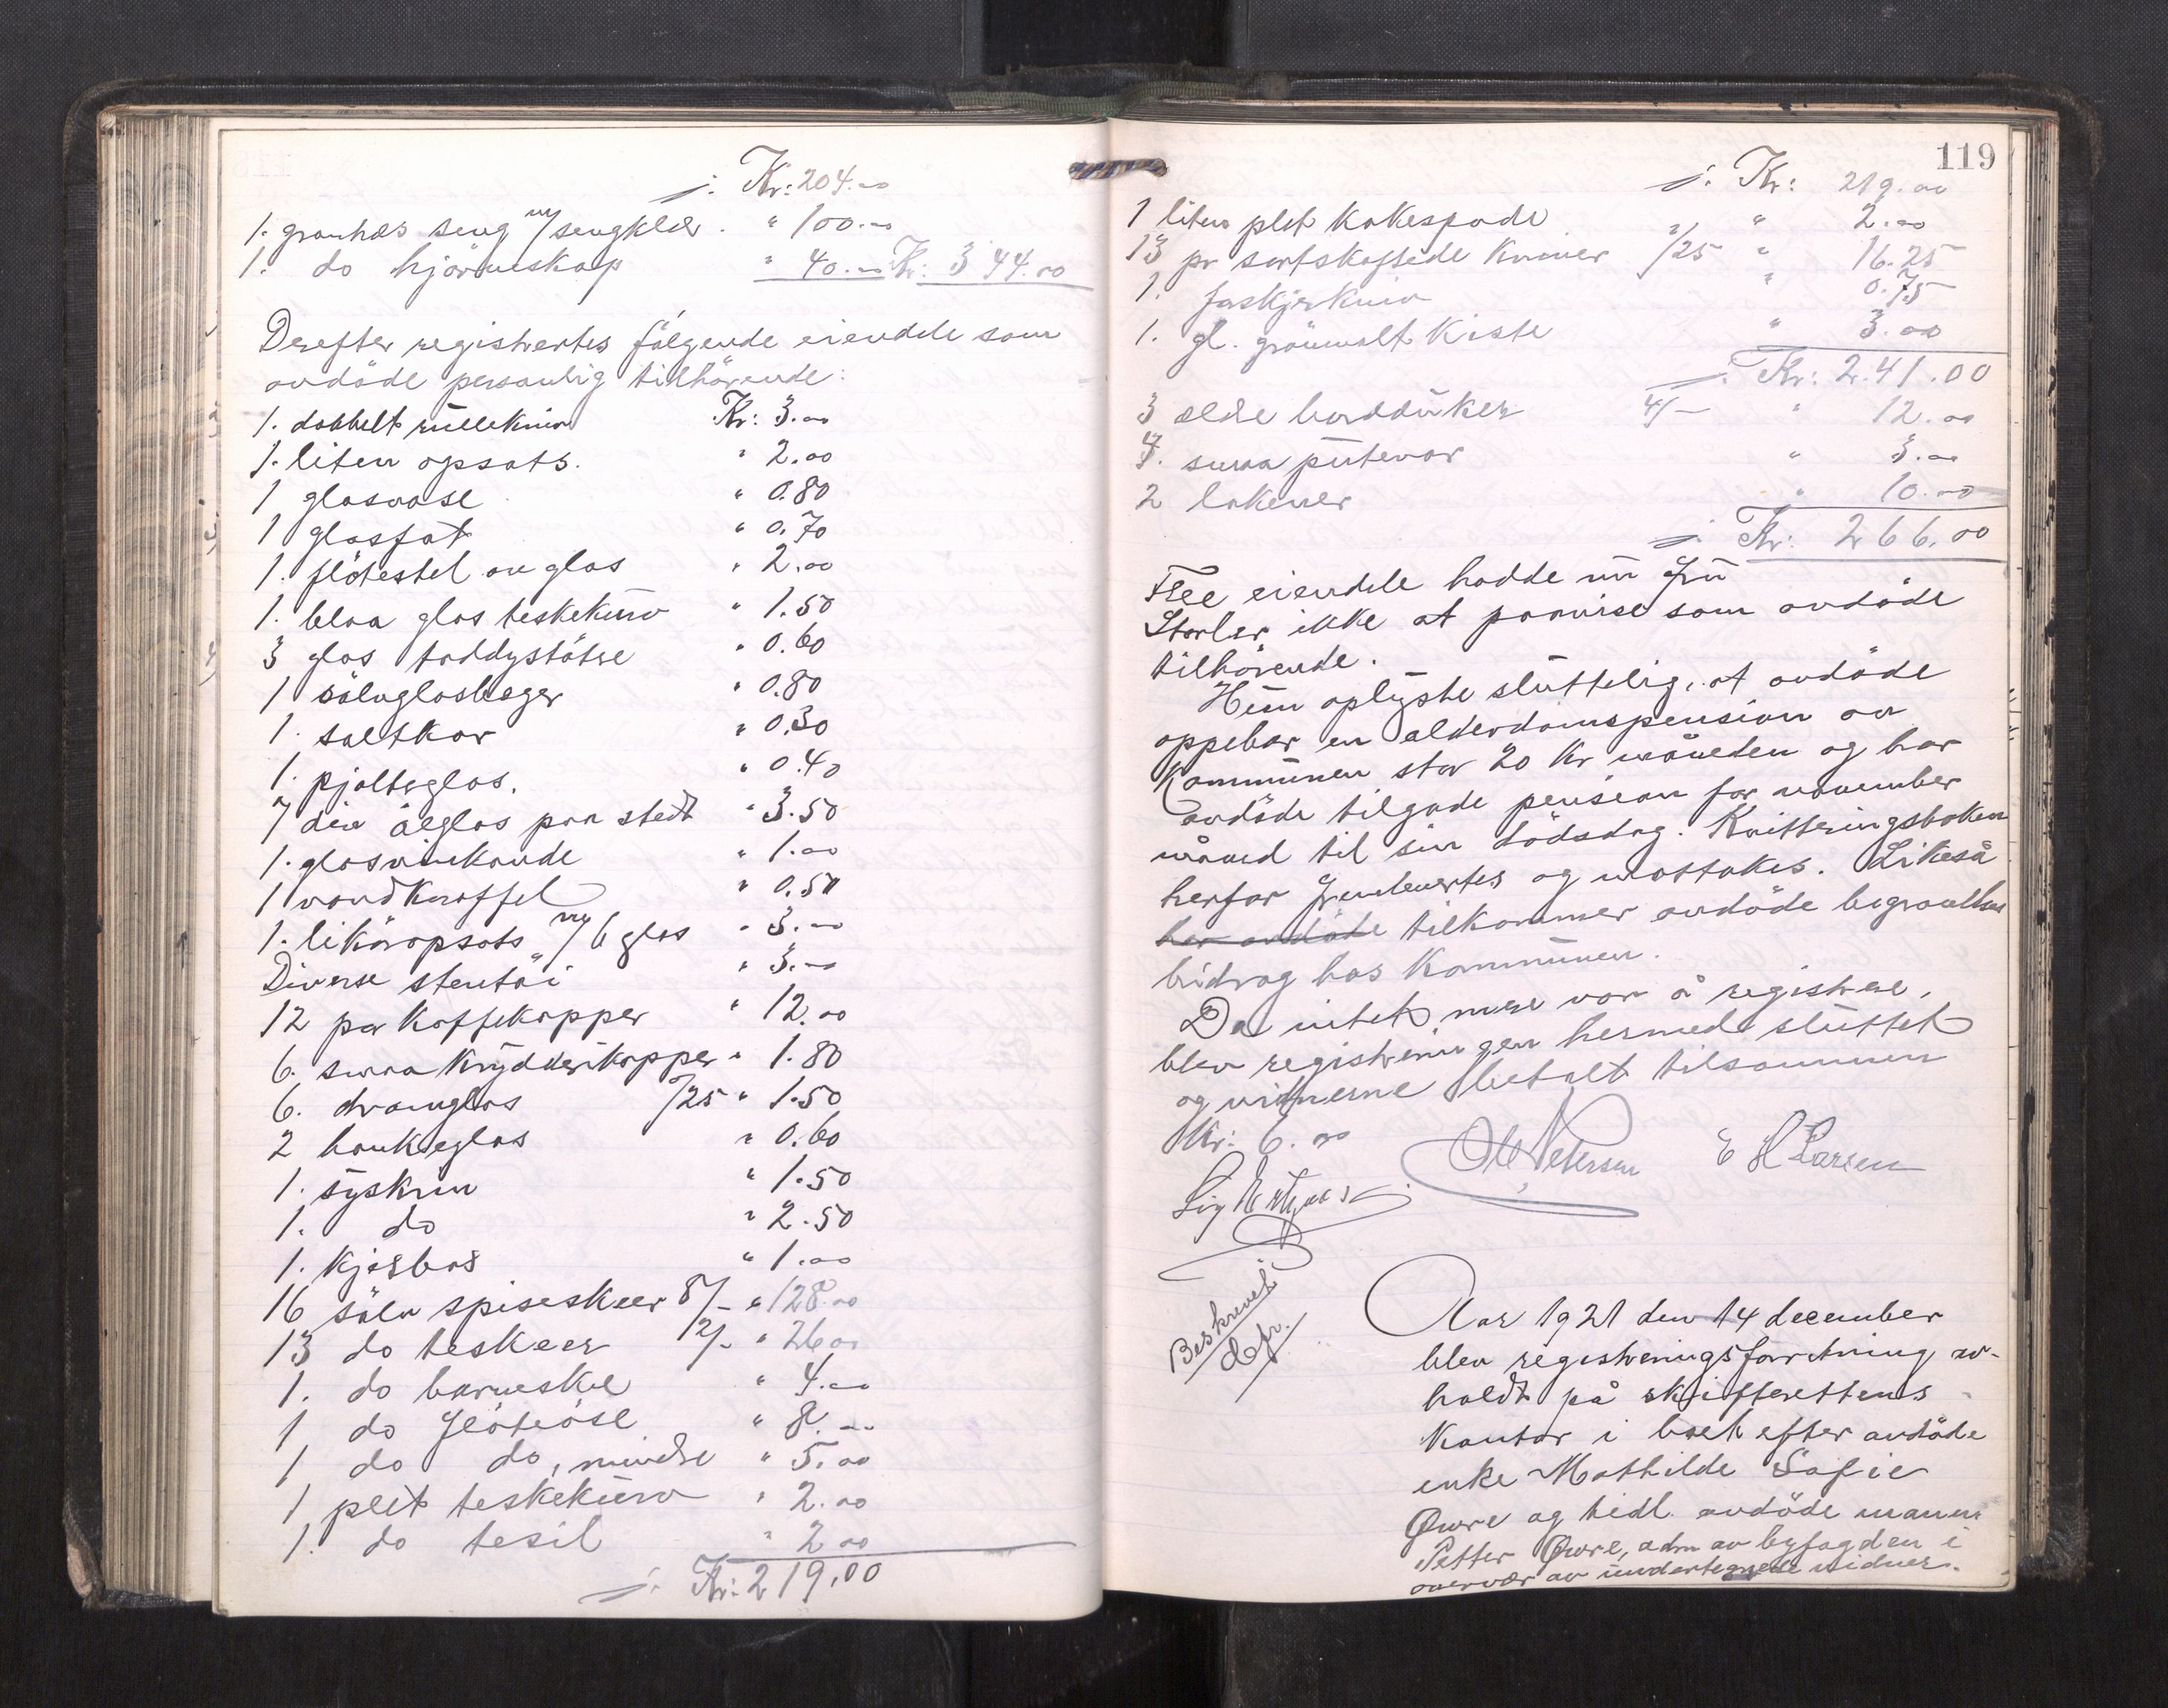 :/: Kr: 204.00
1. granhæs seng m/ sengklær. " 100.00
1. do hjørneskap " 40.00 Kr: 344.00
Derefter registrertes følgende eiendele som
avdøde personlig tilhørende:
1. dobbelt rullekniv Kr: 3.00
1. liten opsats. " 2.00
1 glasvase " 0.80
1 glasfat " 0.70
1. fløtestel av glas " 2.00
1. blaa glas teskekurv " 1.50
3 glas toddystøtre " 0.60
1 sølvglasbeger " 0.80
1. saltkar " 0.30
1. pjolterglas. " 0.40
7 div ølglas paa stett " 3.50
1. glasvinkande " 1.00
1 vandkaraffel " 0.50
1. likøropsats m/ 6 glas " 3.00
Diverse stentøi " 3.00
12 par kaffekopper " 12.00
6. smaa krydderikopper " 1.80
6. dramglas "/25 " 1.50
2 hankeglas " 0.60
1. syskrin " 1.50
1. do " 2.50
1. kjeks " 1.00
16 sølv spiseskeer 8/- " 128.00
13 do teskeer 2/- " 26.00
1. do barneske " 4.00
1 do fløteøse " 8.00
1 do do, mindre " 5.00
1 plet teskekurv " 2.00
1. do tesil " 2.00
:/: Kr: 219.00
119
:/: Kr: 219.00
1 liten plet kakespade " 2.00
13 par sortskaftede kniver 1/25 " 16.25
1. forskjærkniv " 0.75
1. gl. grønmalt kiste " 3.00
:/: Kr: 241.00
3 ældre bordduker 4/- " 12.00
4. smaa putevar " 3.00
2 lakener " 10.00
:/: Kr: 266.00
Flere eiendele hadde nu fru
ikke at paavise som avdøde
tilhørende.
Hun oplyste sluttelig, at avdøde
oppebar en alderdomspension av
kommunen stor 20 kr måneden og har
avdøde tilgode pension for november
måned til sin dødsdag. Kvitteringsboken
herfor fremlevertes og mottokes. Likeså
har avdøde tilkommer avdøde begravelses
bidrag hos kommunen.
Da intet mere var å registrere,
blev registreringen hermed sluttet
og vidnerne betalt tilsammen
Kr: 6.00 Petersen E H Larsen
Beskrevet
Aar 1921 den 14 december
blev registreringsforretning av-
holdt på skifterettens
kontor i boet efter avdøde
enke Mathilde Sofie
Øwre og tidl. avdøde mann
Petter Øwre, adm av byfogden i
overvær av undertegnede vidner.